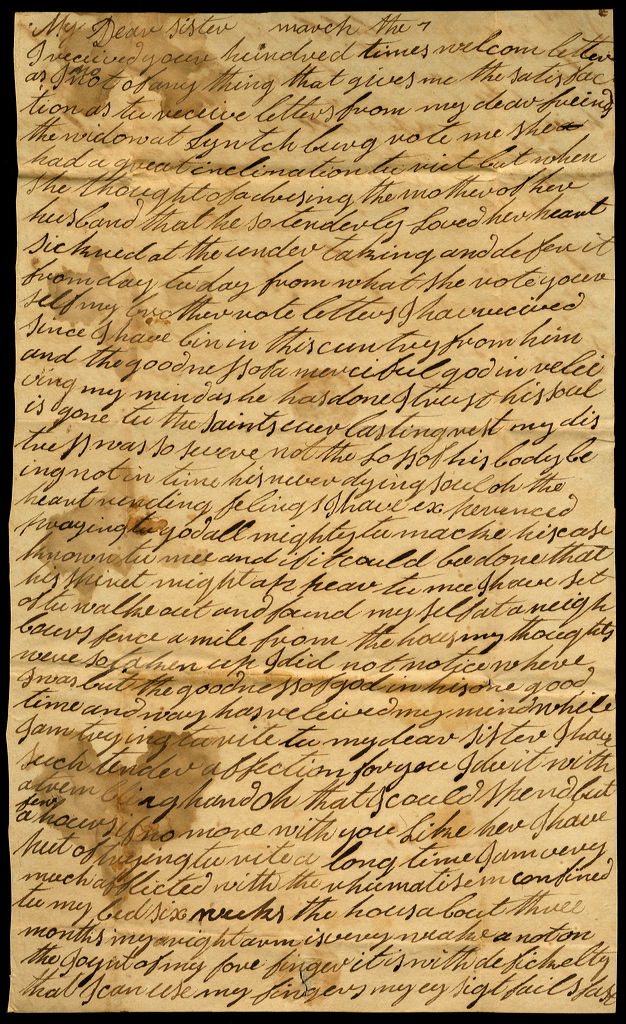 My Dear Sister march the 7
I received your hundred times welcom letter
as I no not of any thing that gives me the satisfac
tion as to receive letters from my dear freinds
the widow at Lyntch burg rote me she
had a great inclination to rite but when
she thought of adresing the mother of her
husband that he so tenderly loved her heart
sickned at the under taking and defer it
from day to day from what she rote your
self my brother rote letters I have received
since I have bin in this cuntry from him
and the goodness of a merciful god in relei
ving my mind as he has done I trust his soul
is gone to the saints ever lasting rest my dis
tress was so severe not the loss of his body be
ing not in time his never dying soul oh the
heart rending felings I have ex perenced
praying to god all mighty to macke his case
known to mee and if it could be done that
his spiret might ap pear to mee I have set
of to walke out and found my self at a neigh
bours fence a mile from the hous my thoughts
were so taken up I did not notice where
I was but the goodness of god in his one good
time and way has releived my mind while
I am trying to rite to my dear sister I have
such tender affection for you I do it with
a trem bling hand oh that I could spend but
a few hours if no more with you like her I have
put of trying to rite a long time I am very
much afflicted with the rhumatisem confined
to my bed six weeks the hous about three
months my right arm is very weake a not on
the joynt of my fore finger it is with defickelty
that I can use my fingers my ey sigt fails fast